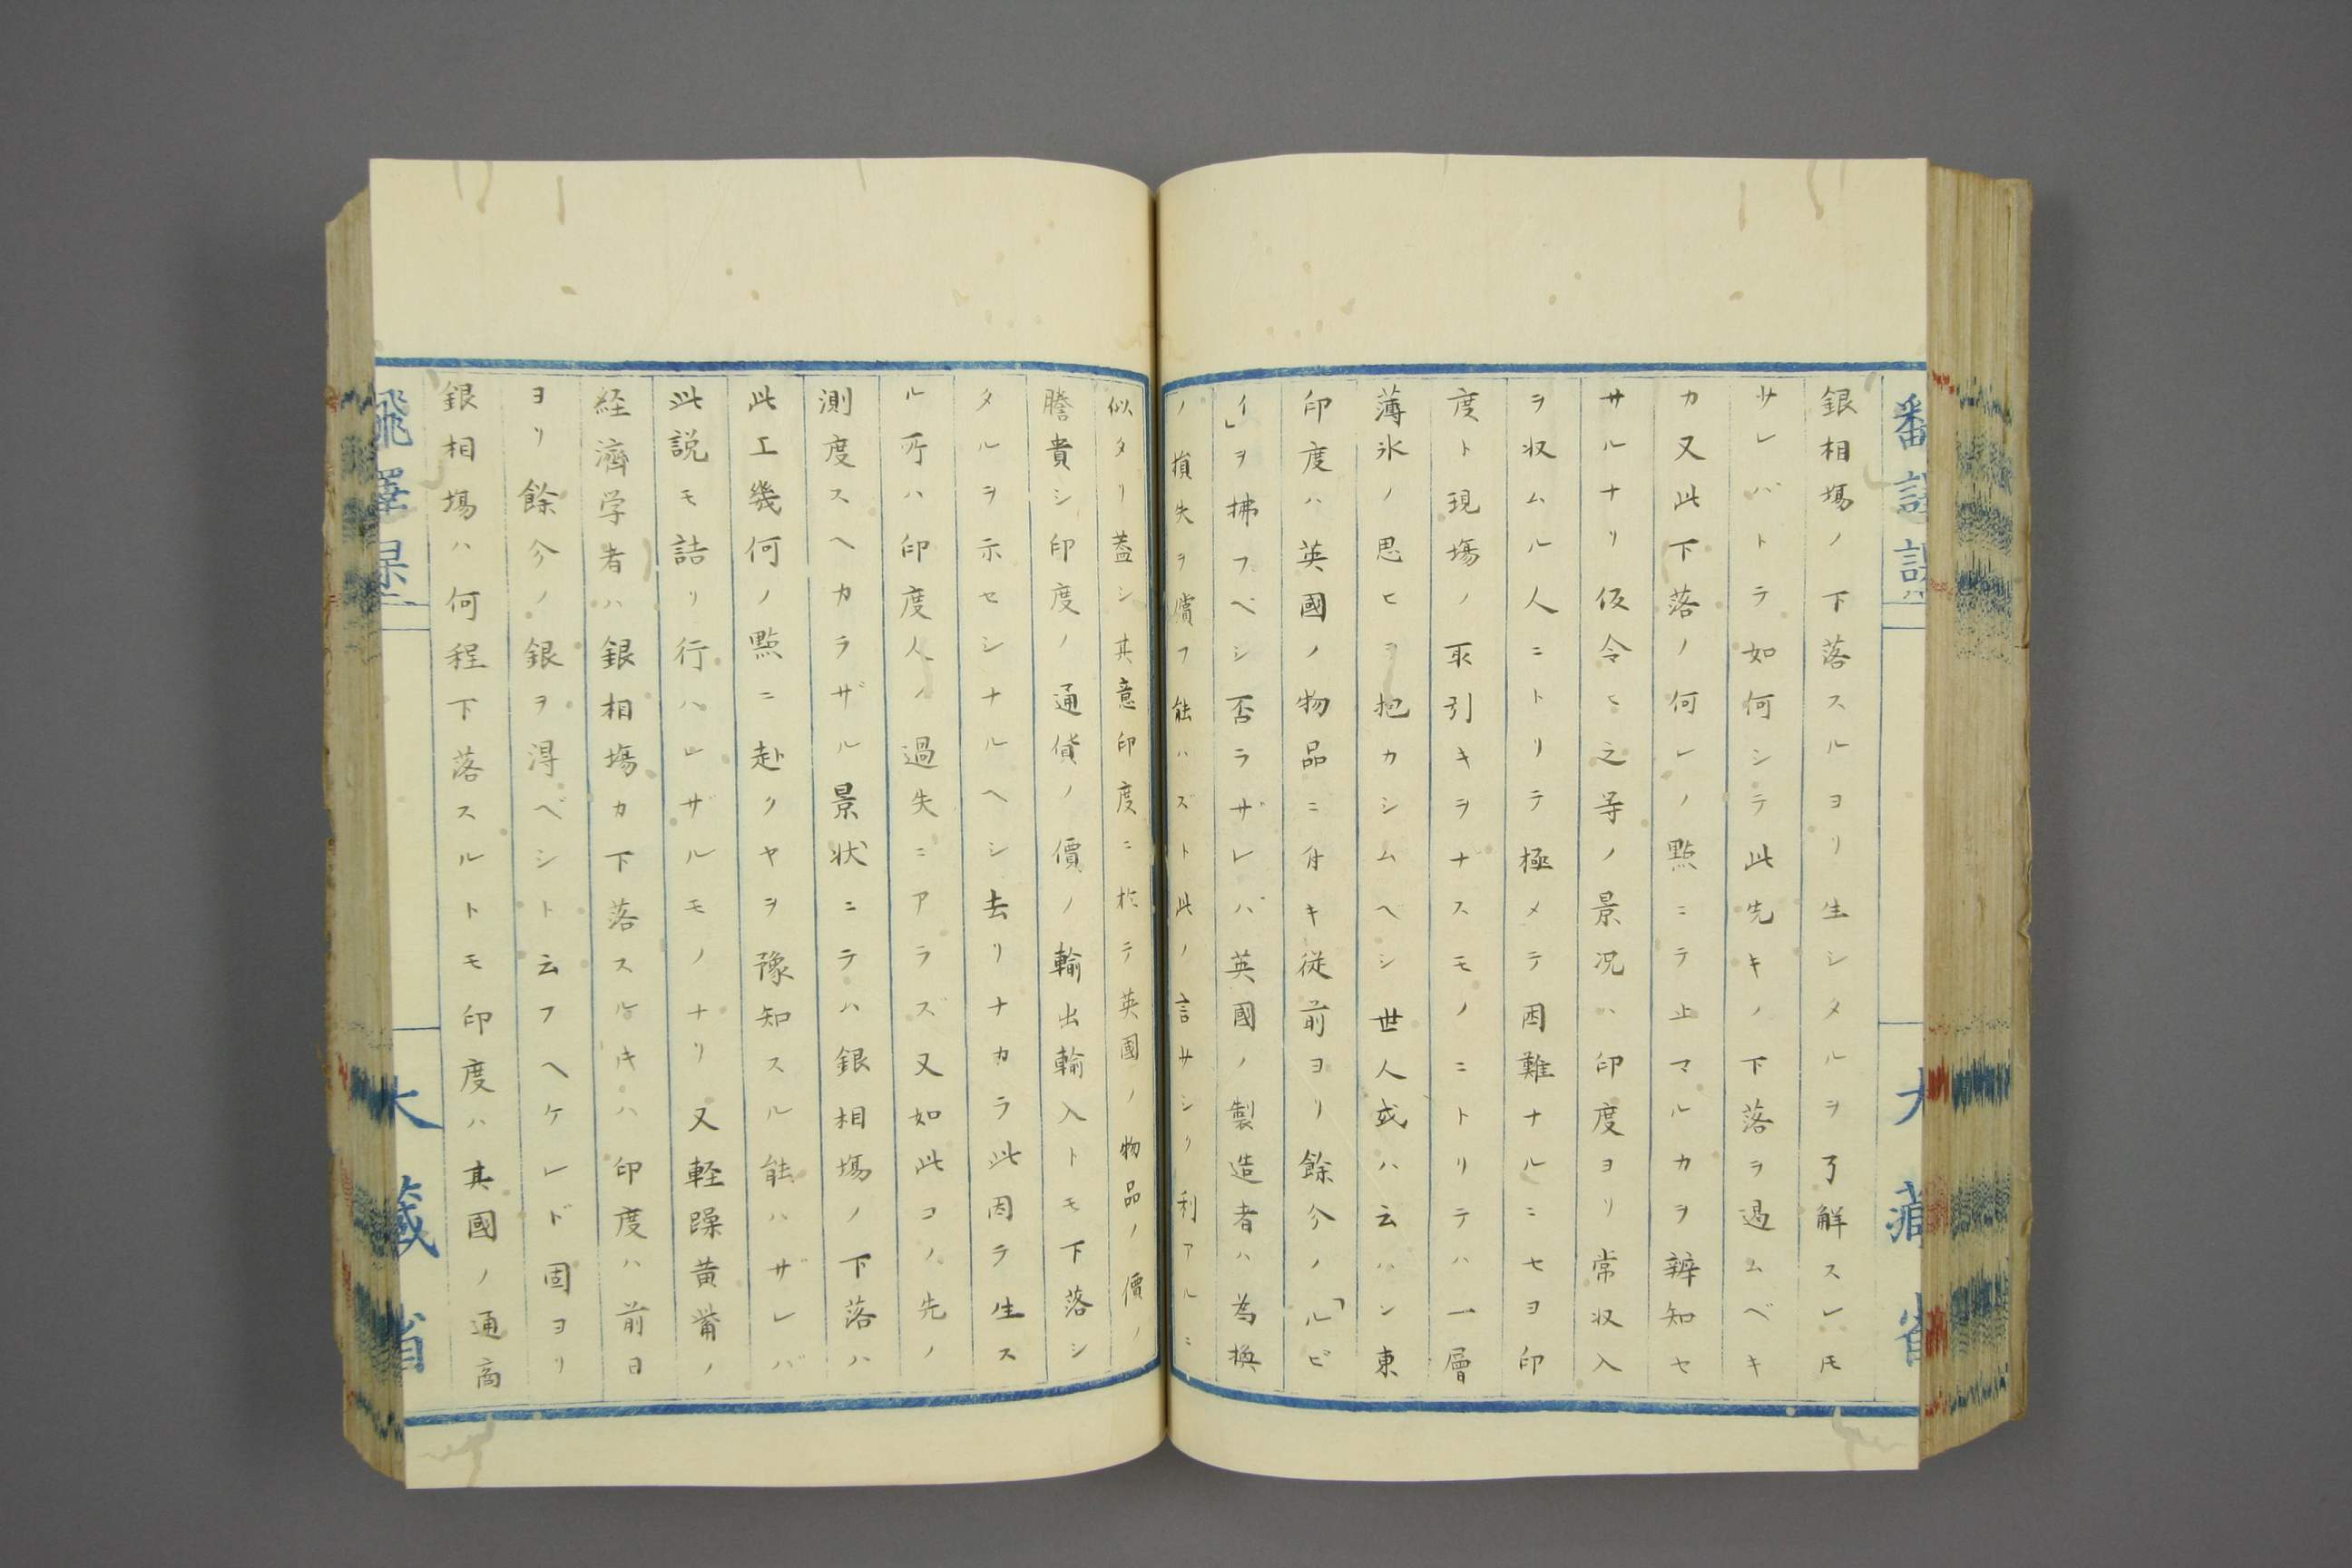 銀相塲ノ下落スルヨリ生シタルヲ了解スレ𪜈
サレバトテ如何シテ此先キノ下落ヲ遏ムベキ
カ又此下落ノ何レノ點ニテ止マルカヲ辨知セ
サルナリ仮令ヒ之等ノ景况ハ印度ヨリ常収入
ヲ収ムル人ニトリテ極メテ困難ナルニセヨ印
度ト現塲ノ取引キヲナスモノニトリテハ一層
薄氷ノ思ヒヲ抱カシムヘシ世人或ハ云ハン東
印度ハ英國ノ物品ニ付キ従前ヨリ餘分ノ「ルピ
イ」ヲ拂フベシ否ラザレバ英國ノ製造者ハ為換
ノ損失ヲ償フ能ハズト此ノ言サシク利アルニ
似タリ蓋シ其意印度ニ於テ英國ノ物品ノ價ノ
謄貴シ印度ノ通貨ノ價ノ輸出輸入トモ下落シ
タルヲ示セシナルヘシ去リナカラ此因テ生ス
ル所ハ印度人ノ過失ニアラズ又如此コノ先ノ
測度スヘカラザル景状ニテハ銀相塲ノ下落ハ
此上幾何ノ點ニ赴クヤヲ豫知スル能ハザレバ
此説モ詰リ行ハレザルモノナリ又軽躁黄觜ノ
経濟学者ハ銀相塲カ下落スルキハ印度ハ前日
ヨリ餘分ノ銀ヲ得ベシト云フヘケレド固ヨリ
銀相塲ハ何程下落スルトモ印度ハ其國ノ通商
大藏省